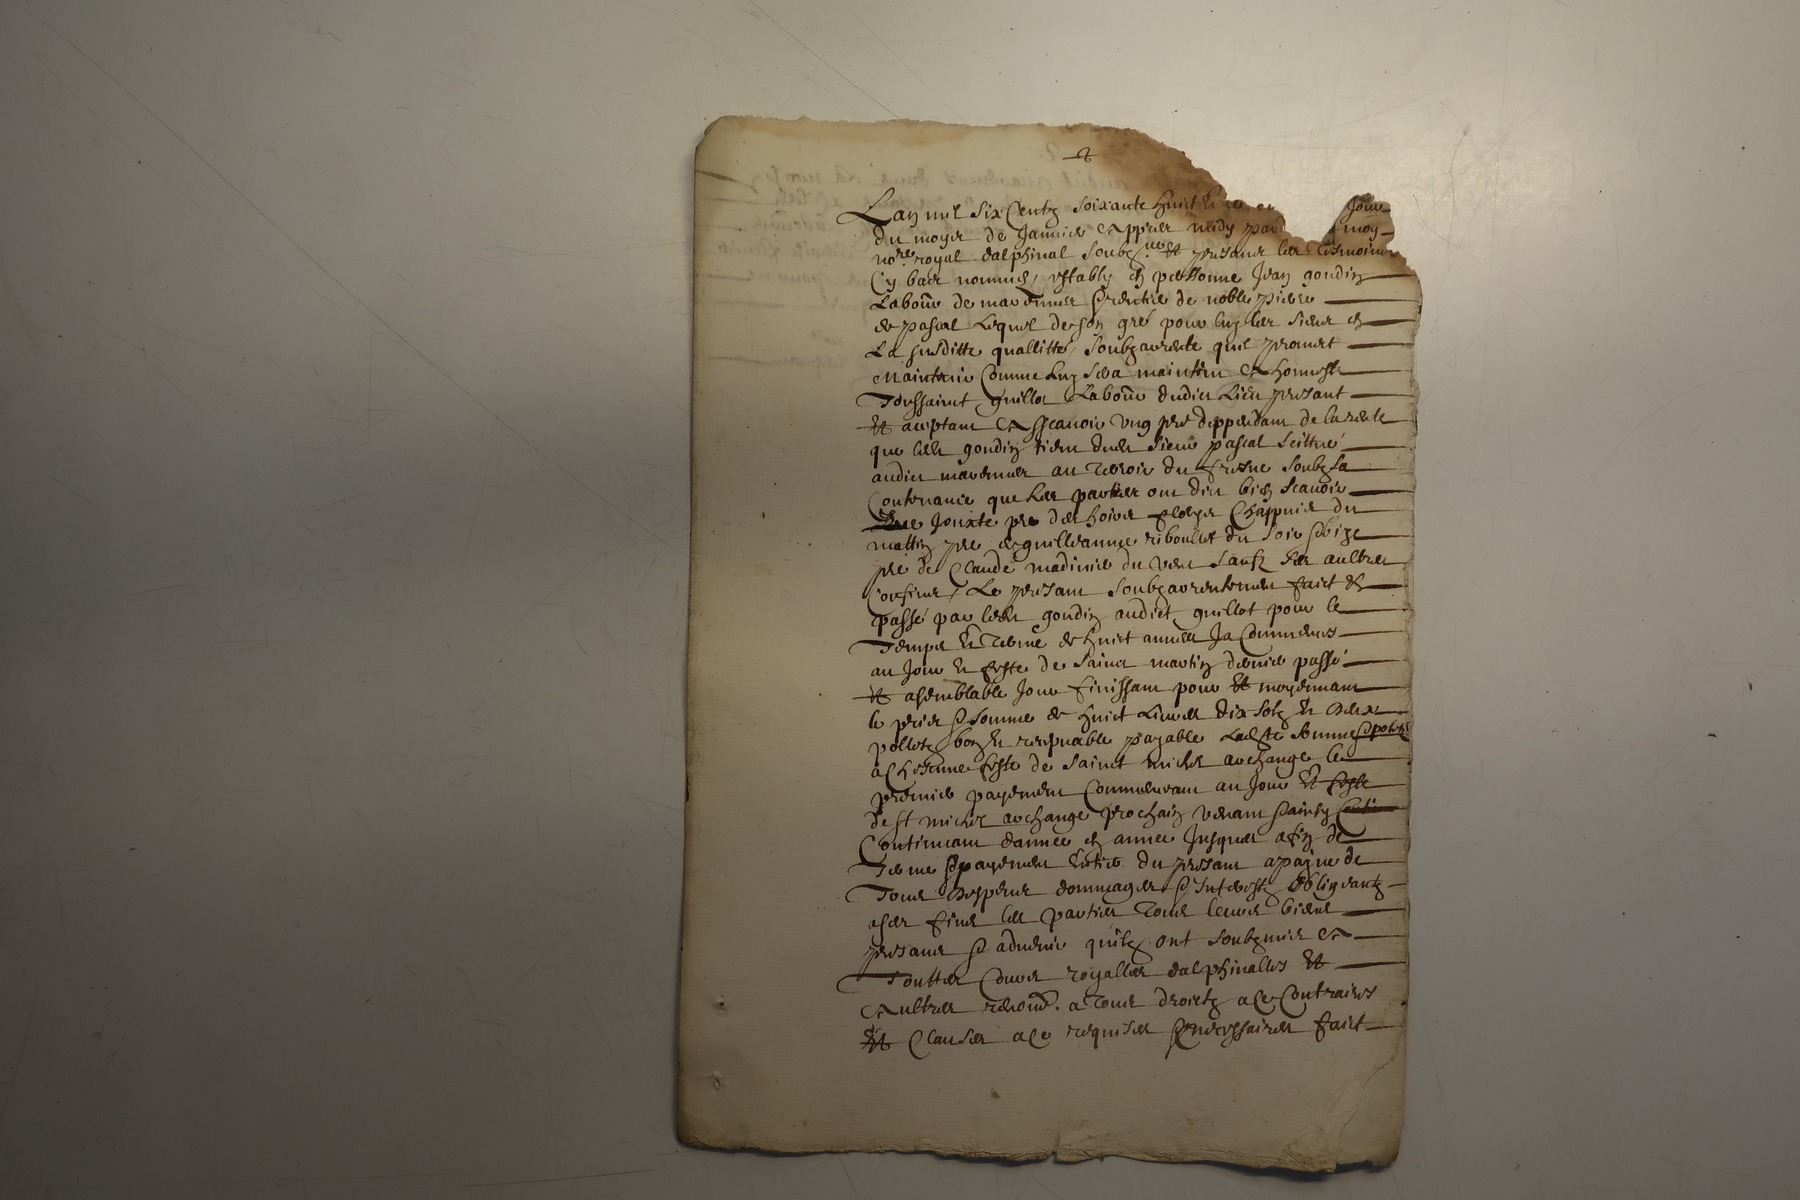 2
Lan mil six Centz soixante huict & le jour
du moys de Janvier & apprès midy par moy
no.re royal dalphinal soubz.né & presans les tesmoins
Cy bas nommés, estably en personne Jean goudin
Labour de mavennes Grentier de noble pierre
de pascal Lequel de son gré pour luy les siens en
La susditte quallitté, soubzarrente quil promet
Maintenir Comme luy sera maintenu & honneste
Toussainct guillot Labour dudict Lieu presant
Et acceptant & Asscavoir ung pré deppendam de la rente
que led. goudin tient dud. sieur pascal scittué
audict mavennes au terroir du fresne soubz sa
Contenance que les parties ont dict bien scavoir
Jouxte pre des hoirs Chappuis du
mattin pre de guilleaume riboullet du soir & bize
pre de Claude madinier du vent sauf ses aultres
Confins, Le presant soubzarrentement faict &
passé par led. goudin audict guillot pour le
Temps & terme de huict années Ja Commencés
au Jour & feste de Sainct martin dernier passé
Et a semblable Jour finissant pour Et moyennant
le prix & somme de huict Livres dix solz & deux
pollets bon & recepvable payable lad.te somme & polletz
a Chascune feste de Sainct michel archange le
premier payement Commencant au Jour Et feste
de st michel archange prochain venant & ainsy
Continuant dannée en année Jusques a fin de
Terme & payement Entier du presant a payne de
Tous despens dommages & Interestz Obligeantz
a ses fins les parties tous leurs biens
presans & advenir quilz ont soubzmis &
Touttes Cours royalles dalphinalles Et
Aultres renon.t a tous droictz a ce Contraires
Et Clauses a ce requises & necessaires faict